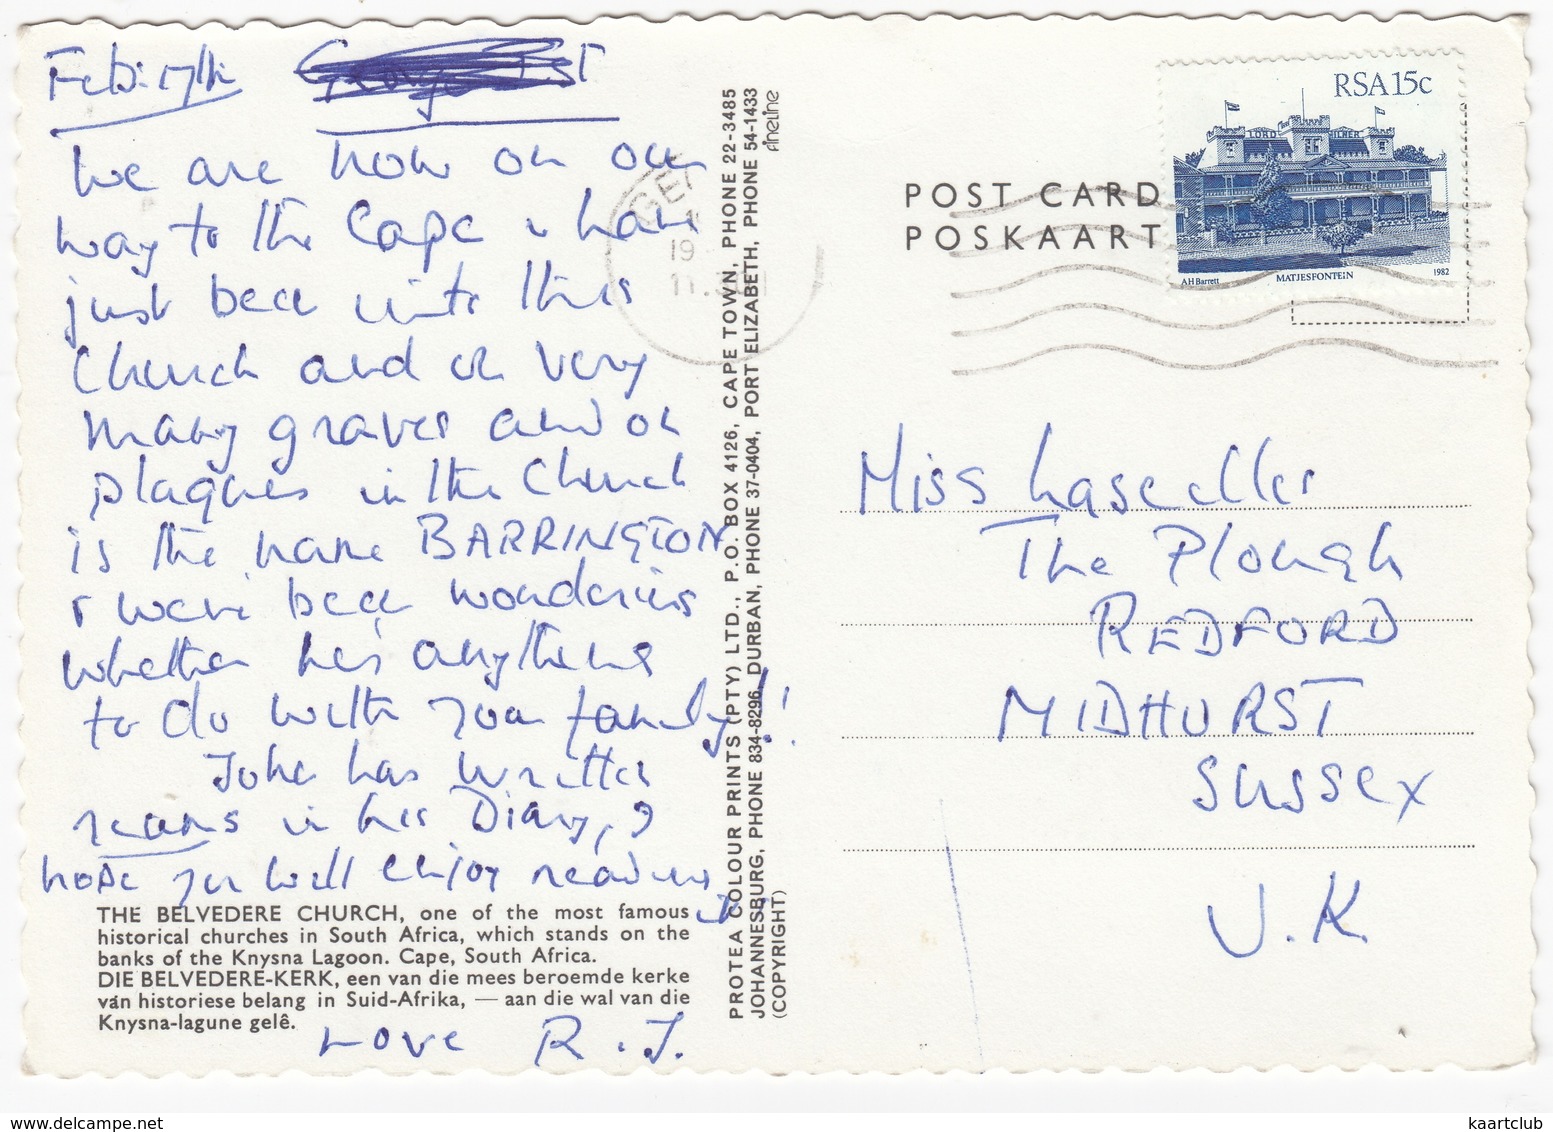 Feb: 17th
We are now on our
way to the Cape & have
just been into this
Church and on very
many graves and on
plaques in the Church
is the name BARRINGTON
& were been wondering
whether he's anything
to do with your family!!
John has written
reams in his Diary, &
hope you will enjoy reading
it.
THE BELVEDERE CHURCH, one of the most famous
historical churches in South Africa, which stands on the
banks of the Knysna Lagoon. Cape, South Africa.
DIE BELVEDERE-KERK, een van die mees beroemde kerke
van historiese belang in Suid-Afrika, — aan die wal van die
Knysna-lagune gelê.
Love R. J.
PROTEA COLOUR PRINTS (PTY) LTD., P.O. BOX 4126, CAPE TOWN, PHONE 22-3485
JOHANNESBURG, PHONE 834-8296, DURBAN, PHONE 37-0404, PORT ELIZABETH, PHONE 54-1433
(COPYRIGHT)
fineline
GE
19
POST CARD
POSKAART
RSA 15c
LORD MILNER
AH Barrett MATJESFONTEIN 1982
Miss Lascelles
The Plough
REDFORD
MIDHURST
SUSSEX
U.K.
kaartclub